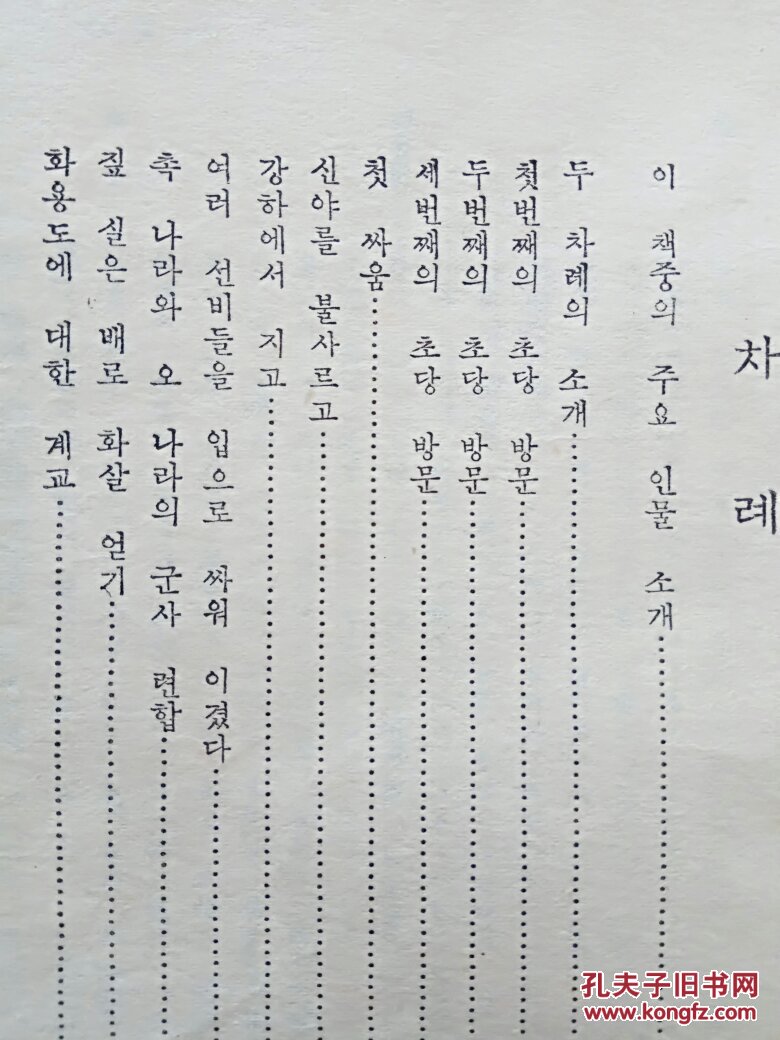 차 례
이 책중의 주요 인물 소개
두 차례의 소개
첫번째의 초당 방문
두번째의 초당 방문
세번째의 초당 방문
첫 싸움
신야를 불사르고
강하에서 지고
여러 선비들을 입으로 싸워 이겼다
촉 나라와 오 나라의 군사 련합
짚 실은 배로 화살 얻기
화용도에 대한 계교
孔夫子旧书网
www.kongfz.com